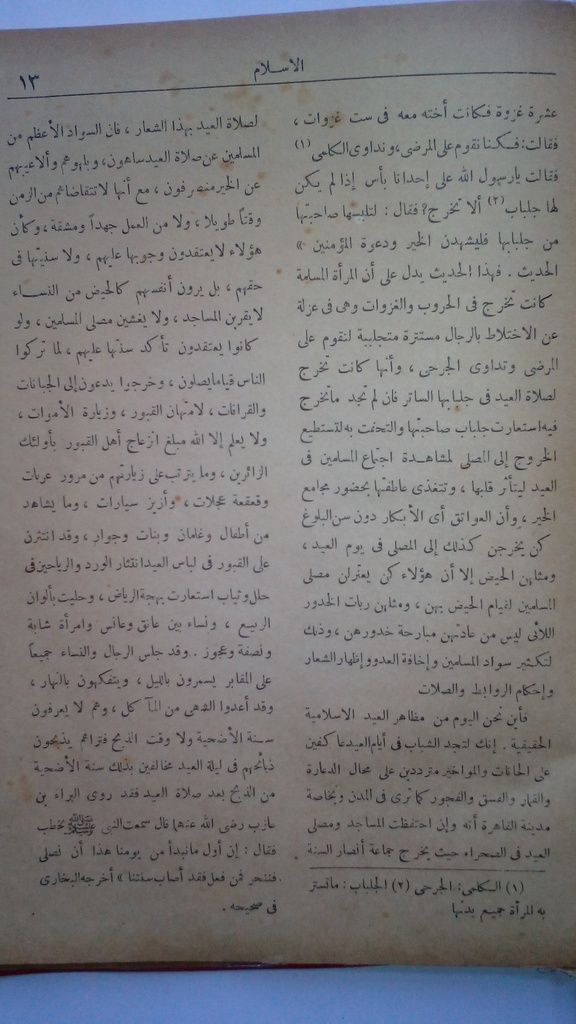 الاسلام
١٣
عشرة غزوة فكانت أخته معه فى ست غزوات ،
فقالت : فكنا نقوم على المرضى ، ونداوى الكلمى (١)
فقالت يارسول الله على إحدانا بأس إذا لم يكن
لها جلباب (٢) ألا تخرج ؟ فقال : لتلبسها صاحبتها
من جلبابها فليشهدن الخير ودعوة المؤمنين »
الحديث . فهذا الحديث يدل على أن المرأة المسلمة
كانت تخرج فى الحروب والغزوات وهى فى عزلة
عن الاختلاط بالرجال مستترة متجلببة لتقوم على
المرضى وتداوى الجرحى ، وأنها كانت تخرج
لصلاة العيد فى جلبابها الساتر فان لم تجد ماتخرج
فيه استعارت جلباب صاحبتها والتحفت به لتستطيع
الخروج إلى المصلى لمشاهدة اجتماع المسلمين فى
العيد ليتأثر قلبها ، وتتغذى عاطفتها بحضور مجامع
الخير ، وأن العواتق أى الأبكار دون سن البلوغ
كن يخرجن كذلك إلى المصلى فى يوم العيد ،
ومثلهن الحيض إلا أن هؤلاء كن يعتزلن مصلى
المسلمين لقيام الحيض بهن ، ومثلهن ربات الخدور
اللائى ليس من عادتهن مبارحة خدورهن ، وذلك
لتكثير سواد المسلمين وإخافة العدو وإظهار الشعار
وإحكام الروابط والصلات
فأين نحن اليوم من مظاهر العيد الاسلامية
الحقيقية . إنك لتجد الشباب فى أيام العيد عاكفين
على الحانات والمواخير مترددين على محال الدعارة
والقمار والفسق والفجور كما ترى فى المدن وبخاصة
مدينة القاهرة أنه وإن احتفظت المساجد ومصلى
العيد فى الصحراء حيث يخرج جماعة أنصار السنة
(١) الكلمى : الجرحى (٢) الجلباب : ماتستر
به المرأة جميع بدنها
لصلاة العيد بهذا الشعار ، فان السواد الأعظم من
المسلمين عن صلاة العيد ساهون ، وبلهوهم وألاعيبهم
عن الخير منصرفون ، مع أنها لا تتقاضاهم من الزمن
وقتاً طويلا ، ولا من العمل جهداً ومشقة ، وكأن
هؤلاء لا يعتقدون وجوبها عليهم ، ولا سنيتها فى
حقهم ، بل يرون أنفسهم كالحيض من النساء
لا يقربن المساجد ، ولا يغشين مصلى المسلمين ، ولو
كانوا يعتقدون تأكد سنتها عليهم ، لما تركوا
الناس قياما يصلون ، وخرجوا يدعون إلى الجبانات
والقرافات ، لامتهان القبور ، وزيارة الأموات ،
ولا يعلم إلا الله مبلغ انزعاج أهل القبور بأولئك
الزائرين ، وما يترتب على زيارتهم من مرور عربات
وقعقعة عجلات ، وأزيز سيارات ، وما يشاهد
من أطفال وغلمان وبنات وجوار ، وقد انتثرن
على القبور فى لباس العيد انتثار الورد والرياحين فى
حلل وثياب استعارت بهجة الرياض ، وحليت بألوان
الربيع ، ونساء بين عاتق وعانس وامرأة شابة
ونصفة وعجوز . وقد جلس الرجال والنساء جميعاً
على المقابر يسمرون بالليل ، ويتفكهون بالنهار ،
وقد أعدوا الشهى من المآكل ، وهم لا يعرفون
سنة الأضحية ولا وقت الذبح فتراهم يذبحون
ذبائحهم فى ليلة العيد مخالفين بذلك سنة الأضحية
من الذبح بعد صلاة العيد فقد روى البراء بن
عازب رضى الله عنهما قال سمعت النبى ﷺ يخطب
فقال : إن أول مانبدأ من يومنا هذا أن نصلى
فننحر فمن فعل فقد أصاب سنتنا » أخرجه البخارى
فى صحيحه .